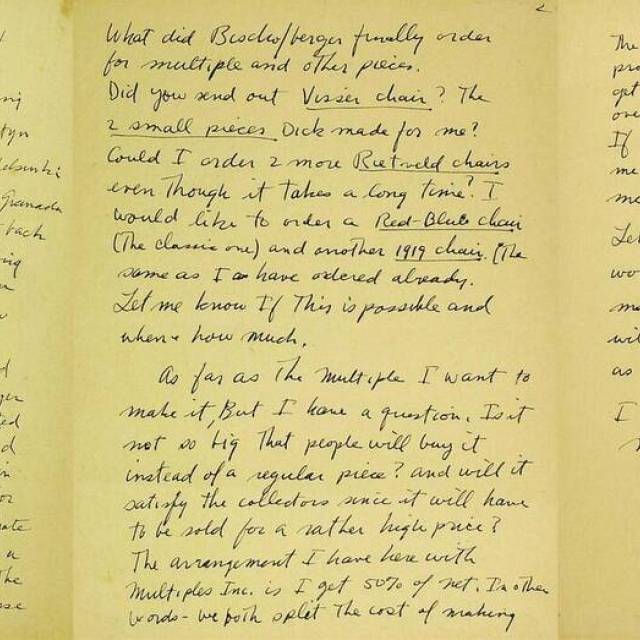 2
What did Bischofberger finally order
for multiple and other pieces.
Did you send out Visser chair? The
2 small pieces Dick made for me?
Could I order 2 more Rietveld chairs
even though it takes a long time? I
would like to order a Red-Blue chair
(The classic one) and another 1919 chair. (The
same as I have ordered already.
Let me know If This is possible and
when + how much.
As far as The multiple I want to
make it, But I have a question. Is it
not so big That people will buy it
instead of a regular piece? and will it
satisfy the collectors since it will have
to be sold for a rather high price?
The arrangement I have here with
Multiples Inc. is I get 50% of net. In other
words - we both split The cost of making
tyn
Helsinki
Granada
back
ing
d
ted
d
in
or
ate
a
The
The
pro
opt
ove
If
me
me
Let
wo
ma
wil
as
I